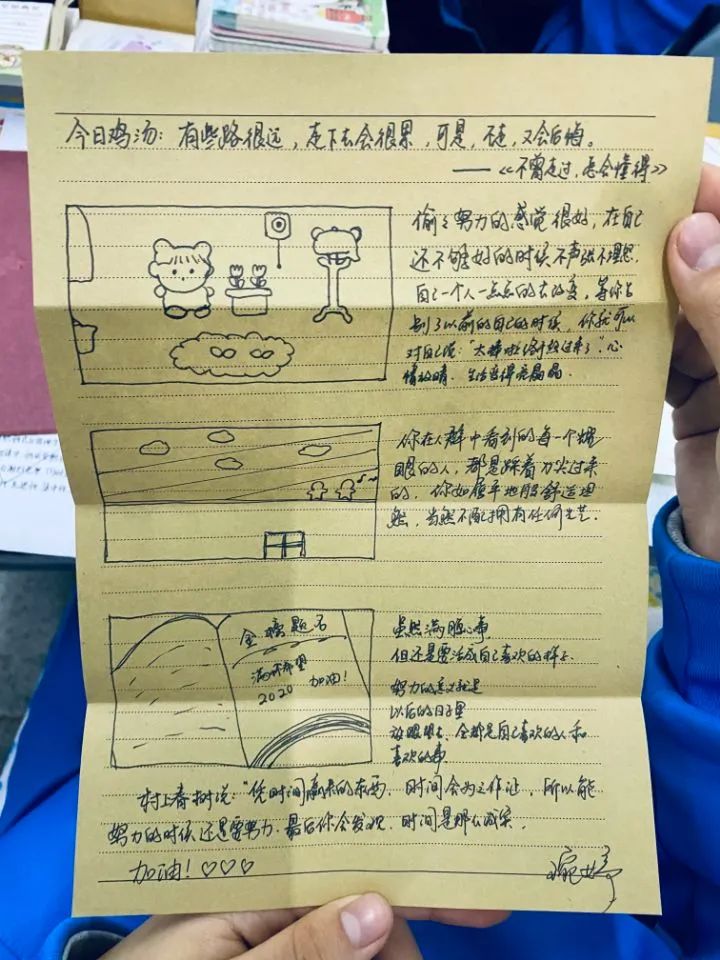 今日鸡汤：有些路很远，走下去会很累，可是，不走，又会后悔。
——《不曾走过，怎会懂得》
偷々努力的感觉很好，在自己
还不够好的时候不声张不理怨，
自己一个人一点点的去改变，等你告
别了以前的自己的时候，你就可以
对自己说："太棒啦终于熬过来了"。心
情放晴，生活变得亮晶晶。
你在人群中看到的每一个耀
眼的人，都是踩着刀尖过来
的，你如履平地般舒适逍
，当然不配拥有任何光芒。
金榜题名
满怀希望
2020 加油！
虽然满腹心事
但还是要活成自己喜欢的样子
努力的意义就是
以后的日子里
放眼望去、全都是自己喜欢的人和
喜欢的事
村上春树说："凭时间赢来的东西，时间会为之作证，所以能
努力的时候还是要努力，最后你会发现，时间是那么诚実，
加油！♡♡♡
婷